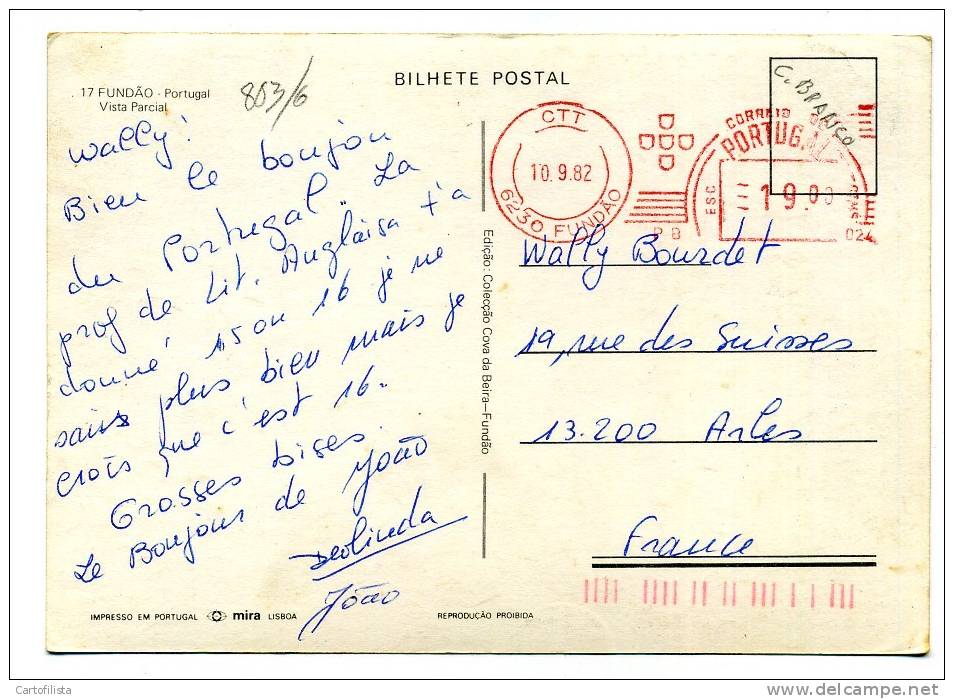 17 FUNDÃO - Portugal
Vista Parcial
803/6
BILHETE POSTAL
C. BRANCO
CTT
10.9.82
6230 FUNDÃO
P B
CORREIO
PORTUGAL
ESC
19.00
024
Wally!
Bien le bonjou
du Portugal. La
prof de Lit. Anglaisa t'a
donné 15 ou 16 je ne
sais plus bien mais je
crois que c'est 16.
Grosses bises.
Le Bonjour de João
Deolinda
João
Edição: Colecção Cova da Beira—Fundão
Wally Bourdet
19, rue des Suisses
13.200 Arles
France
IMPRESSO EM PORTUGAL mira LISBOA
REPRODUÇÃO PROIBIDA
Cartofilista
delcampe.net